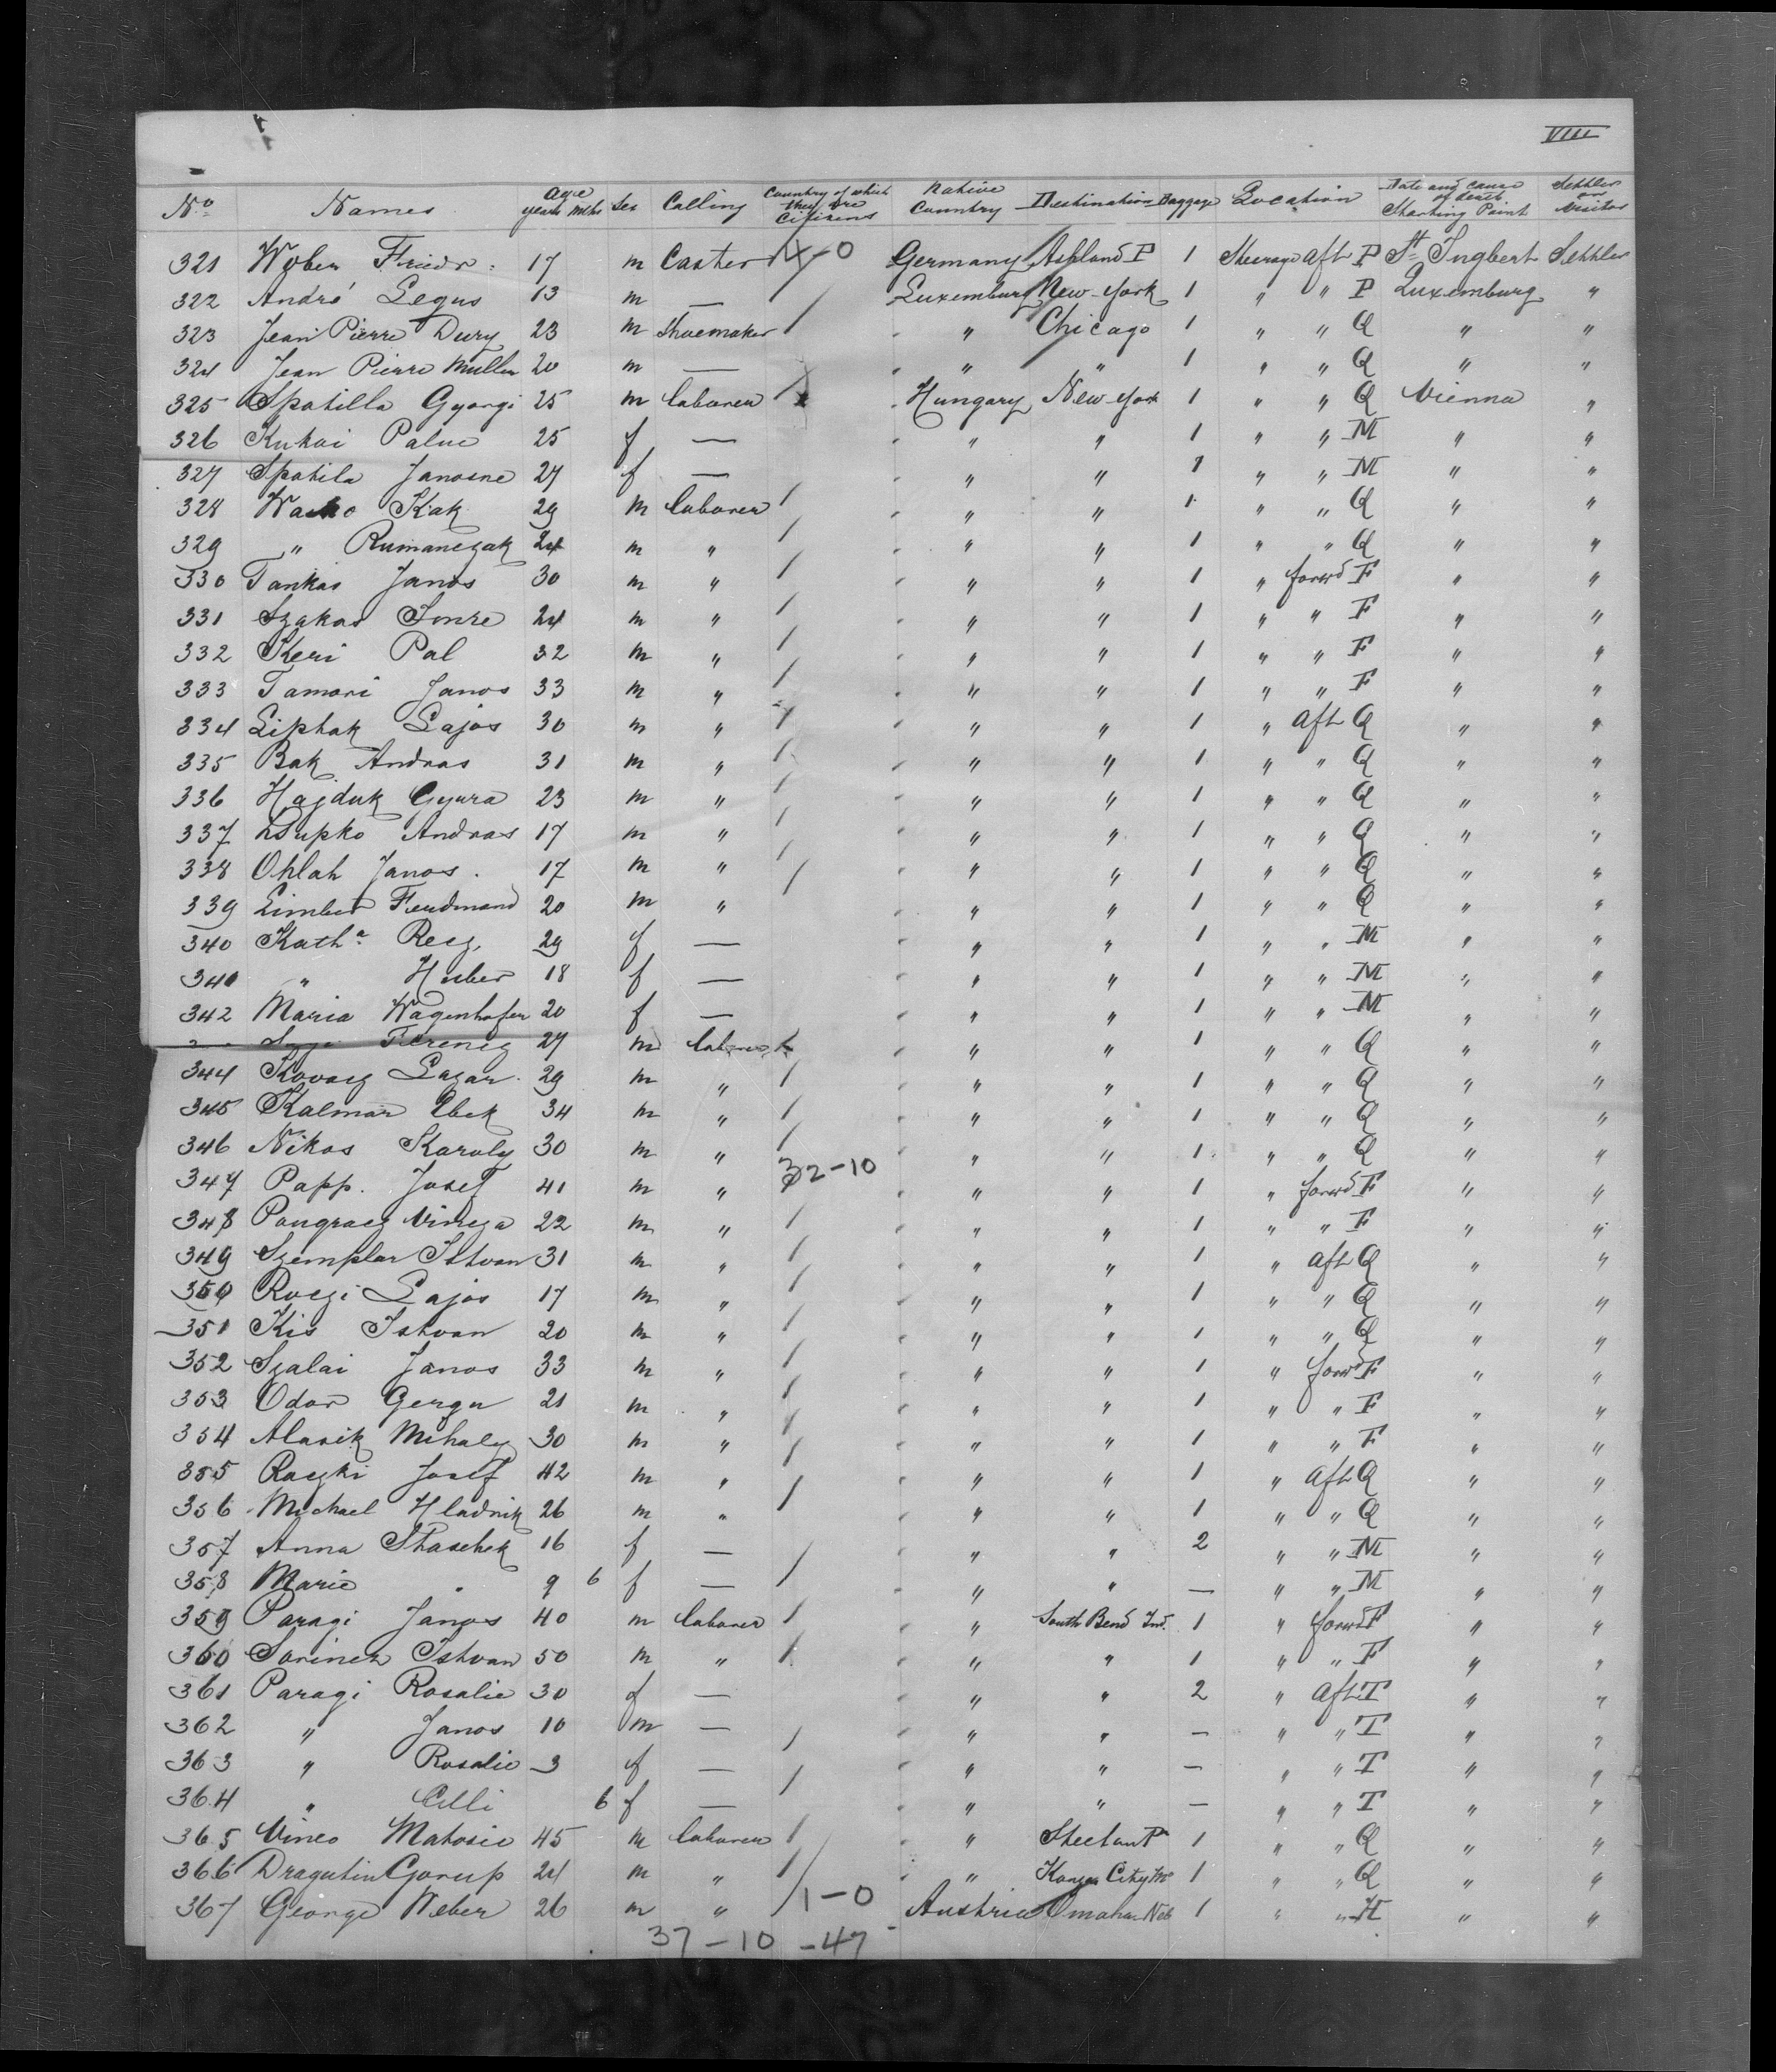 VIII
No Names Age years Mths Sex Calling Country of which they are Citizens Native Country Destination Baggage Location Date and cause of death Starting Point Settler or Visitor
321 Weber Friedr. 17 m Caster 4-0 Germany Ashland P 1 Steerage aft P St Ingbert Settler
322 André Legus 13 m — / Luxemburg New-York 1 " " P Luxemburg "
323 Jean Pierre Dury 23 m Shoemaker / " Chicago 1 " " Q " "
324 Jean Pierre Muller 20 m — " " 1 " " Q " "
325 Spatilla Gyorgi 25 m laborer Hungary New-York 1 " " Q Vienna "
326 Kukai Palne 25 f — " " 1 " " M " "
327 Spatila Janosne 27 f — " " 1 " " M " "
328 Kak 29 m laborer / " " 1 " " Q " "
329 " Rumanezak 24 m " / " " 1 " " Q " "
330 Tankas Janos 30 m " / " " 1 " forwd F " "
331 Szakas Imre 24 m " / " " 1 " " F " "
332 Keri Pal 32 m " / " " 1 " " F " "
333 Tamari Janos 33 m " / " " 1 " " F " "
334 Liphak Lajos 30 m " / " " 1 " aft Q " "
335 Bak Andras 31 m " / " " 1 " " Q " "
336 Hajduk Gyura 23 m " / " " 1 " " Q " "
337 Andras 17 m " / " " 1 " " Q " "
338 Ohlah Janos. 17 m " / " " 1 " " Q " "
339 Limber Ferdinand 20 m " / " " 1 " " Q " "
340 Katha Resz, 29 f — " " 1 " " M " "
341 " Huber 18 f — " " 1 " " M " "
342 Maria Wagenhofer 20 f — " " 1 " " M " "
Ferencz 27 m laborer / " " 1 " " Q " "
344 Kovacz Lazar. 29 m " / " " 1 " " Q " "
345 Kalmar Elek 34 m " / " " 1 " " Q " "
346 Nikos Karoly 30 m " / " " 1 " " Q " "
347 Papp. Josef 41 m " 32-10 " " 1 " forwd F " "
348 Pongracz Vincza 22 m " / " " 1 " " F " "
349 Szemplar Istvan 31 m " / " " 1 " aft Q " "
350 Roczi Lajos 17 m " / " " 1 " " Q " "
351 Kis Istvan 20 m " / " " 1 " " Q " "
352 Szalai Janos 33 m " / " " 1 " forwd F " "
353 Odor Gergu 21 m " / " " 1 " " F " "
354 Alasik Mihaly 30 m " / " " 1 " " F " "
355 Raczki Josef 42 m " / " " 1 " aft Q " "
356 Michael Hladnik 26 m " / " " 1 " " Q " "
357 Anna Straschek 16 f — " " 2 " " M " "
358 Marie " 9 6 f — / " " — " " M " "
359 Paragi Janos 40 m laborer / " South Bend Ind. 1 " forwd F " "
360 Istvan 50 m " / " " 1 " " F " "
361 Paragi Rosalie 30 f — " " 2 " aft T " "
362 " Janos 10 m — / " " — " " T " "
363 " Rosalie 3 f — " " — " " T " "
364 " Cilli 6 f — / " " — " " T " "
365 Vinco Matosic 45 m laborer / " Steelton Pa 1 " " Q " "
366 Dragutin Gorup 24 m " / " Kansas City Mo 1 " " Q " "
367 George Weber 26 m " 1-0 Austria Omaha Neb 1 " " H " "
37-10-47